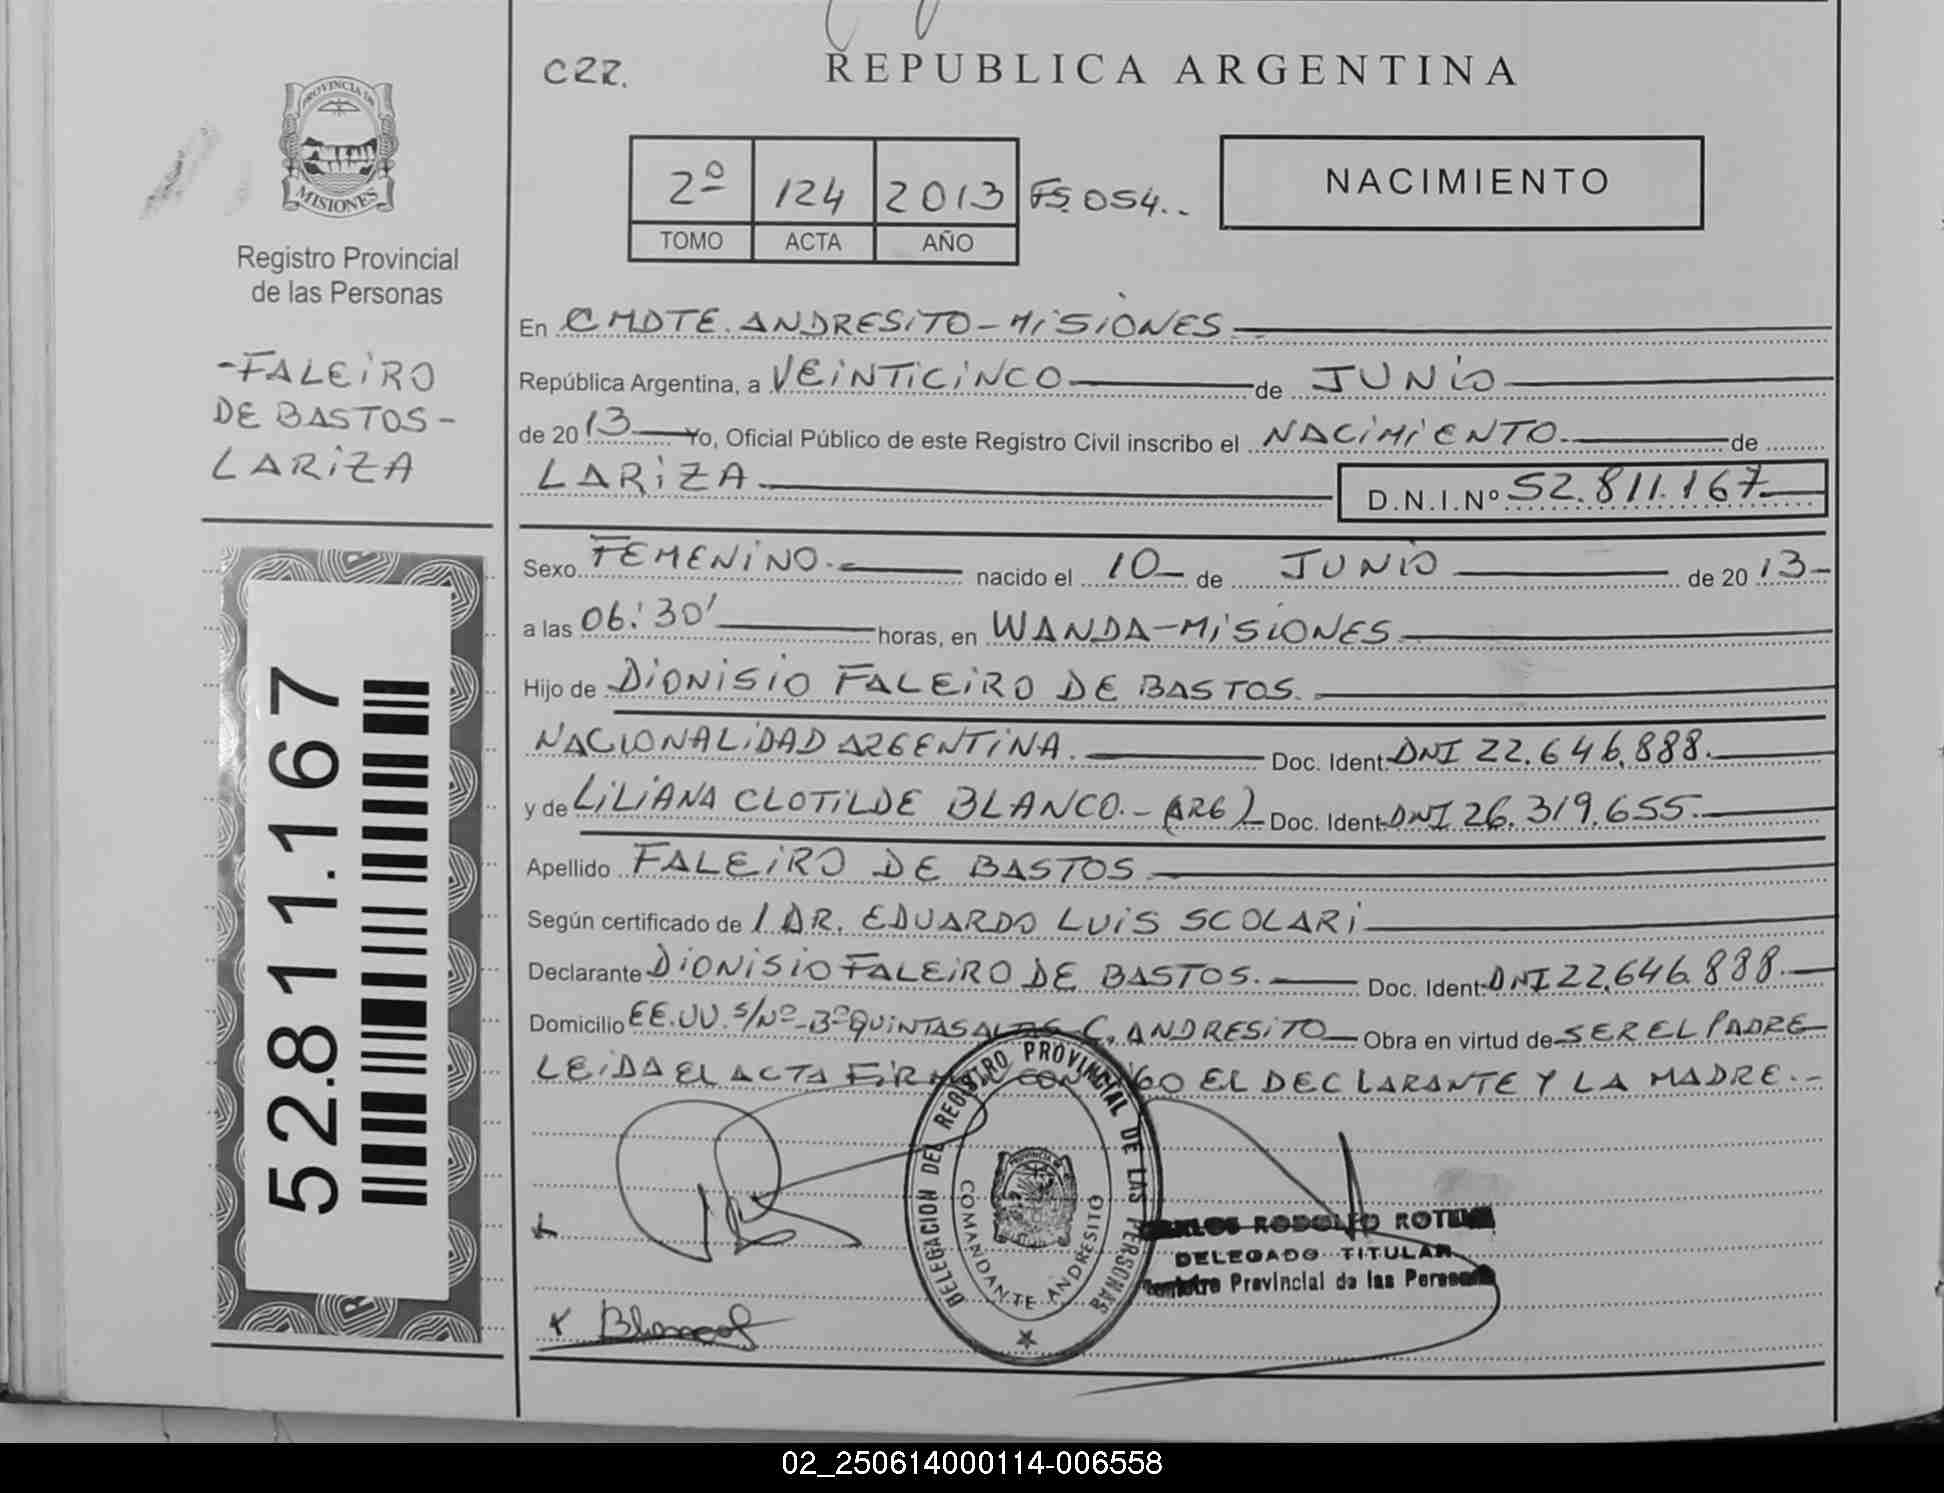 C22.
REPUBLICA ARGENTINA
PROVINCIA DE
MISIONES
Registro Provincial
de las Personas
2º 124 2013 FS.054..
TOMO ACTA AÑO
NACIMIENTO
-FALEIRO
DE BASTOS-
LARIZA
52.811.167
En CMDTE. ANDRESITO-MISIONES
República Argentina, a VEINTICINCO de JUNIO
de 2013 Yo, Oficial Público de este Registro Civil inscribo el NACIMIENTO. de
LARIZA D.N.I.Nº 52.811.167
Sexo FEMENINO. nacido el 10 de JUNIO de 2013
a las 06:30' horas, en WANDA-MISIONES
Hijo de DIONISIO FALEIRO DE BASTOS.
NACIONALIDAD ARGENTINA. Doc. Ident. DNI 22.646.888.
y de LILIANA CLOTILDE BLANCO.- (ARG) Doc. Ident. DNI 26.319.655.
Apellido FALEIRO DE BASTOS
Según certificado de / DR. EDUARDO LUIS SCOLARI
Declarante DIONISIO FALEIRO DE BASTOS. Doc. Ident. DNI 22.646.888.
Domicilio EE.UU. S/Nº-Bº QUINTAS ALTAS C. ANDRESITO Obra en virtud de SER EL PADRE
LEIDA EL ACTA FIRMAN CONMIGO EL DECLARANTE Y LA MADRE.-
DELEGACION DEL REGISTRO PROVINCIAL DE LAS PERSONAS
COMANDANTE ANDRESITO
RODOLFO
DELEGADO TITULAR
Registro Provincial de las Personas
Blanco
02_250614000114-006558